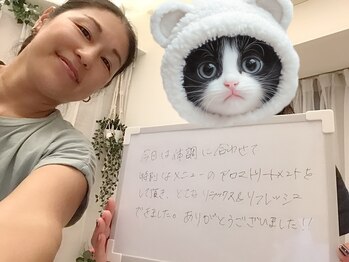 今日は体調に合わせて
特別なメニューのアロマトリートメントを
して頂き、とてもリラックス&リフレッシュ
できました。ありがとうございました!!